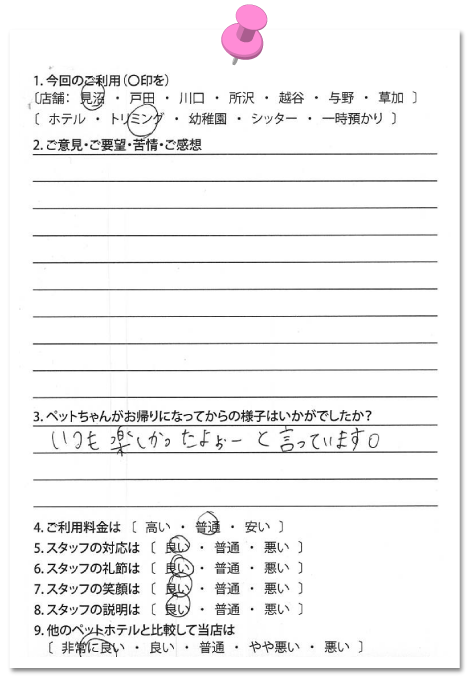 1. 今回のご利用(〇印を)
〔店舗: 見沼 ・ 戸田 ・ 川口 ・ 所沢 ・ 越谷 ・ 与野 ・ 草加 〕
〔 ホテル ・ トリミング ・ 幼稚園 ・ シッター ・ 一時預かり 〕
2. ご意見・ご要望・苦情・ご感想
3. ペットちゃんがお帰りになってからの様子はいかがでしたか?
いつも楽しかったよぉー と言っています。
4. ご利用料金は 〔 高い ・ 普通 ・ 安い 〕
5. スタッフの対応は 〔 良い ・ 普通 ・ 悪い 〕
6. スタッフの礼節は 〔 良い ・ 普通 ・ 悪い 〕
7. スタッフの笑顔は 〔 良い ・ 普通 ・ 悪い 〕
8. スタッフの説明は 〔 良い ・ 普通 ・ 悪い 〕
9. 他のペットホテルと比較して当店は
〔 非常に良い ・ 良い ・ 普通 ・ やや悪い ・ 悪い 〕